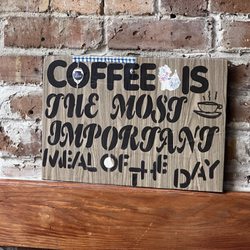 COFFEE IS
THE MOST
IMPORTANT
MEAL OF THE DAY